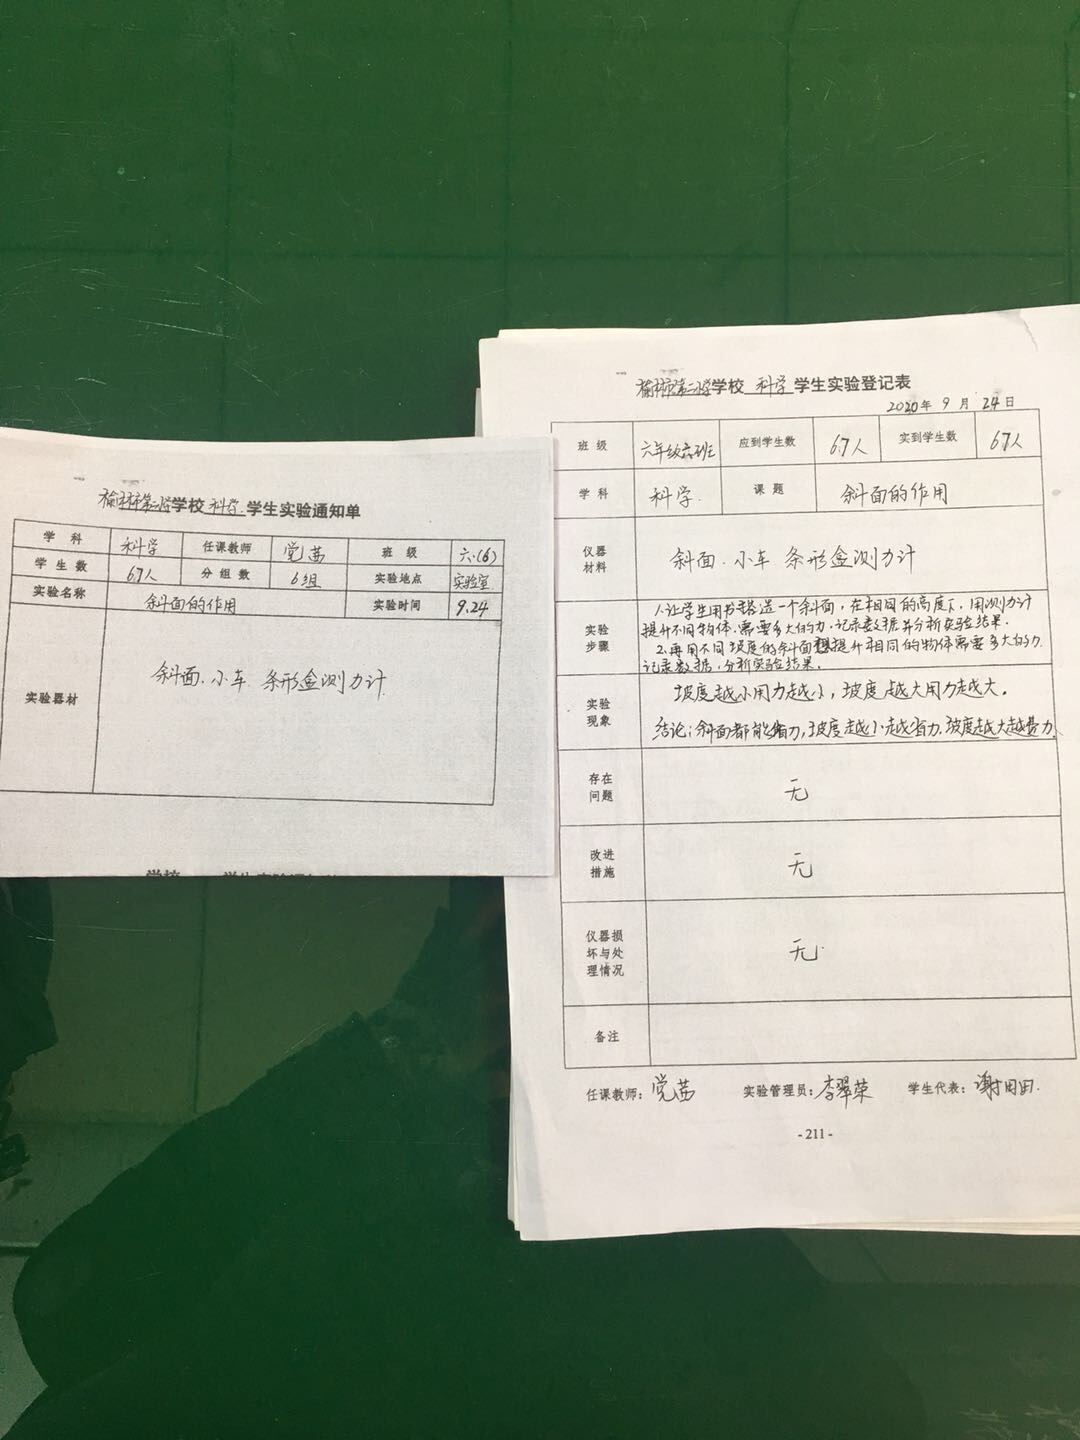 榆林市第二小学学校 科学 学生实验通知单
学 科 科学 任课教师 党茜 班 级 六.(6)
学 生 数 67人 分 组 数 6组 实验地点 实验室
实验名称 斜面的作用 实验时间 9.24
实验器材 斜面.小车 条形盒测力计
榆林市第二小学学校 科学 学生实验登记表
2020年 9 月 24日
班 级 六年级六班 应到学生数 67人 实到学生数 67人
学 科 科学. 课 题 斜面的作用
仪器
材料
斜面.小车 条形盒测力计
实验
步骤
1.让学生用书搭造一个斜面,在相同的高度下,用测力计
提升不同物体.需要多大的力.记录数据并分析实验结果.
2.再用不同坡度的斜面提升相同的物体需要多大的力
记录数据,分析实验结果.
实验
现象
坡度越小用力越小,坡度越大用力越大.
结论:斜面都能省力,坡度越小越省力,坡度越大越费力.
存在
问题
无
改进
措施
无
仪器损
坏与处
理情况
无.
备注
任课教师:党茜 实验管理员:李翠荣 学生代表:谢田田.
- 211 -